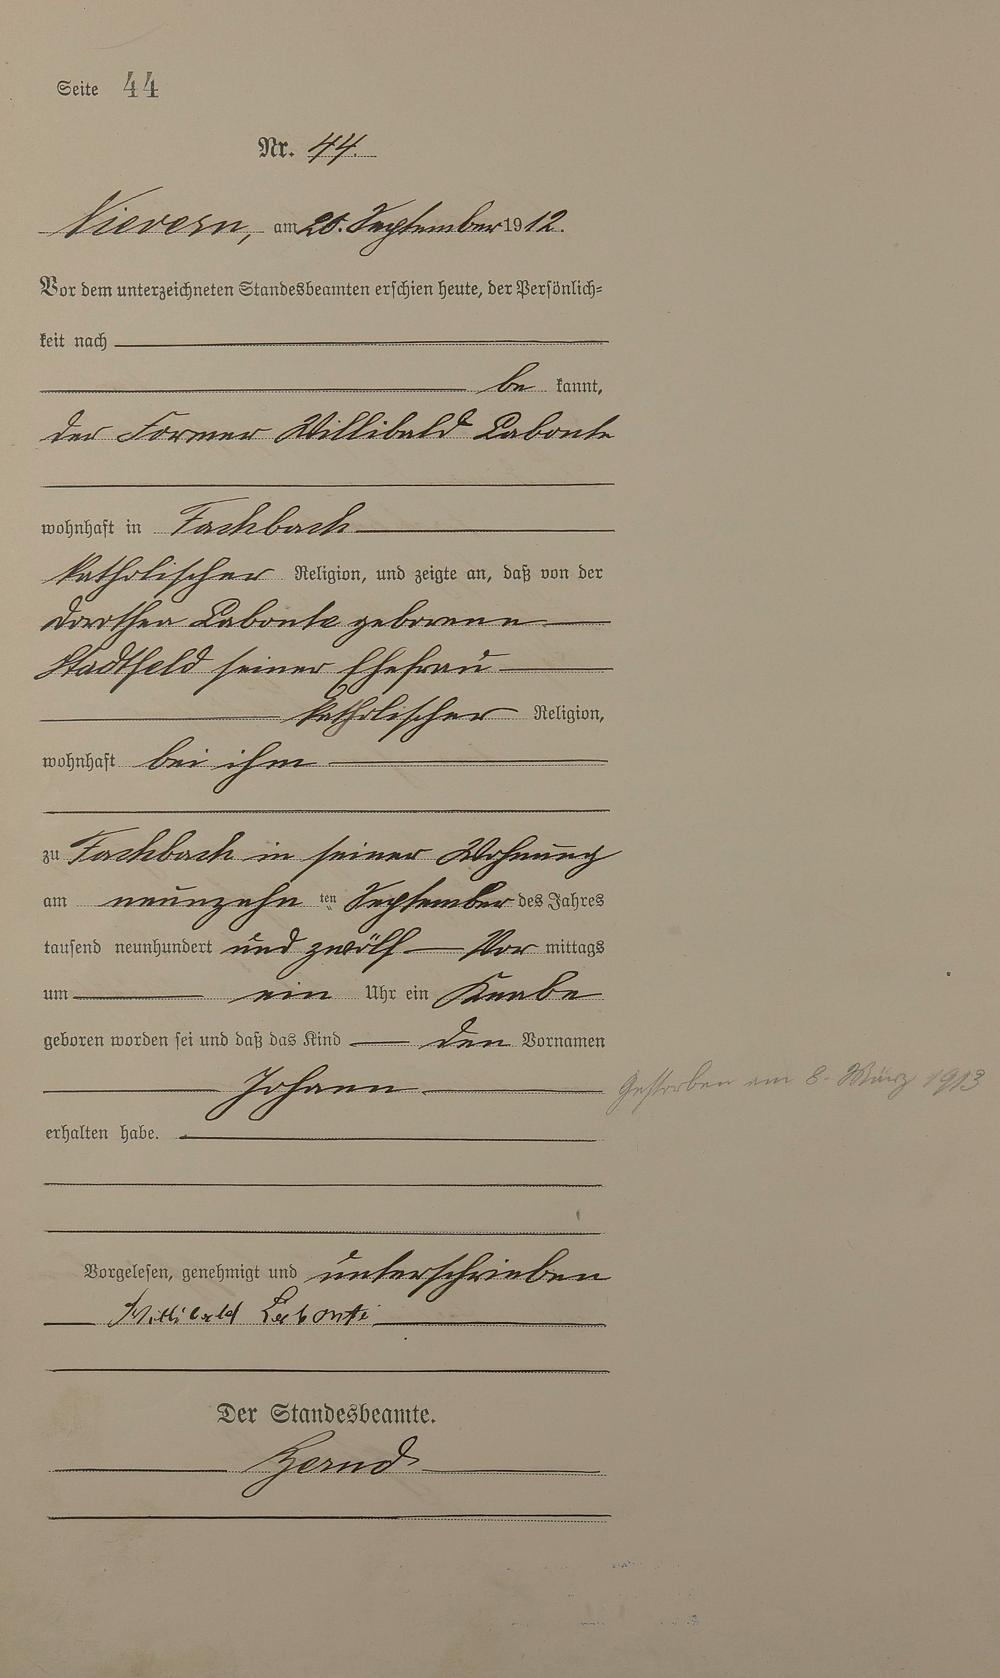 Seite 44
Nr. 44.
Nievern, am 20. September 1912.
Vor dem unterzeichneten Standesbeamten erschien heute, der Persönlich=
keit nach
be kannt,
der Former Willibald Labonte
wohnhaft in Fachbach
katholischer Religion, und zeigte an, daß von der
Dorothea Labonte geborene
Stadtfeld seiner Ehefrau
katholischer Religion,
wohnhaft bei ihm
zu Fachbach in seiner Wohnung
am neunzehn ten September des Jahres
tausend neunhundert und zwölf Vor mittags
um ein Uhr ein Knabe
geboren worden sei und daß das Kind den Vornamen
Johann
Gestorben am 8. März 1913
erhalten habe.
Vorgelesen, genehmigt und unterschrieben
Willibald Labonte
Der Standesbeamte.